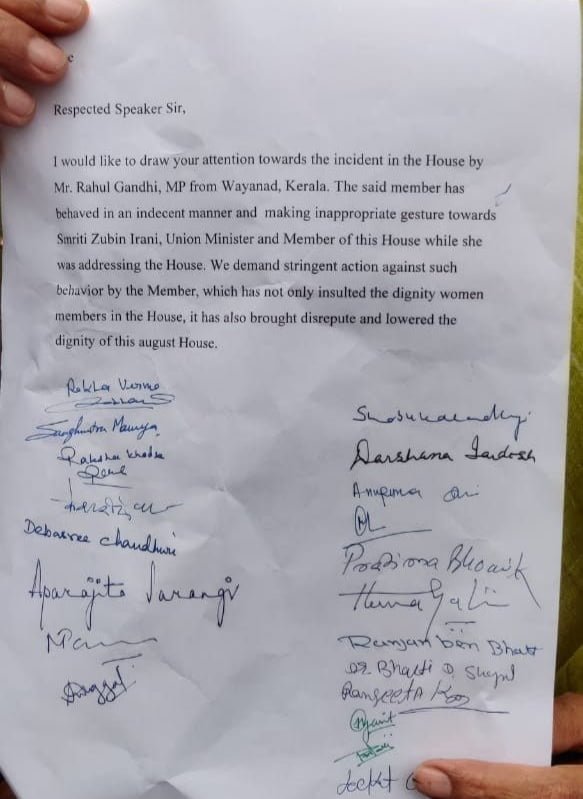 Respected Speaker Sir,
I would like to draw your attention towards the incident in the House by
Mr. Rahul Gandhi, MP from Wayanad, Kerala. The said member has
behaved in an indecent manner and making inappropriate gesture towards
Smriti Zubin Irani, Union Minister and Member of this House while she
was addressing the House. We demand stringent action against such
behavior by the Member, which has not only insulted the dignity women
members in the House, it has also brought disrepute and lowered the
dignity of this august House.
Rekha Verma
Sanghmitra Maurya
Raksha Khadse
Debasree Chaudhuri
Aparajita Sarangi
Darshana Jardosh
Anupriya
Pratima Bhoumik
Hema
Ranjanben Bhatt
Dr Bharti D. Shyal
Rangeeta